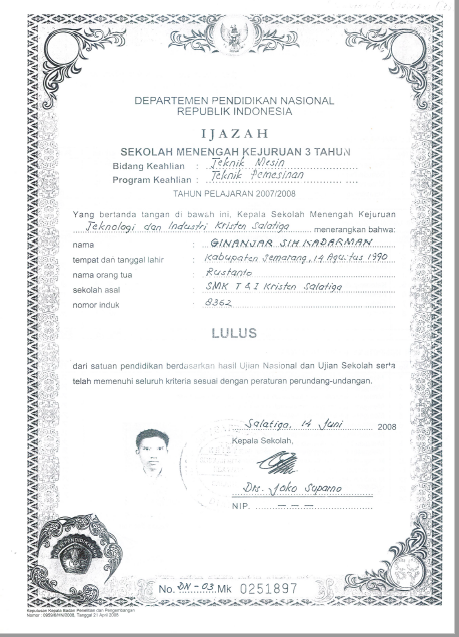 DEPARTEMEN PENDIDIKAN NASIONAL
REPUBLIK INDONESIA
IJAZAH
SEKOLAH MENENGAH KEJURUAN 3 TAHUN
Bidang Keahlian : Teknik Mesin
Program Keahlian : Teknik Pemesinan
TAHUN PELAJARAN 2007/2008
Yang bertanda tangan di bawah ini, Kepala Sekolah Menengah Kejuruan
Teknologi dan Industri Kristen Salatiga menerangkan bahwa:
nama : GINANJAR SIH KADARMAN
tempat dan tanggal lahir : Kabupaten Semarang, 14 Agustus 1990
nama orang tua : Rustanto
sekolah asal : SMK T & I Kristen Salatiga
nomor induk : 8362
LULUS
dari satuan pendidikan berdasarkan hasil Ujian Nasional dan Ujian Sekolah serta
telah memenuhi seluruh kriteria sesuai dengan peraturan perundang-undangan.
Salatiga, 14 Juni 2008
Kepala Sekolah,
Drs. Joko Suparno
NIP. — — —
No. DN-03 Mk 0251897
Keputusan Kepala Badan Penelitian dan Pengembangan